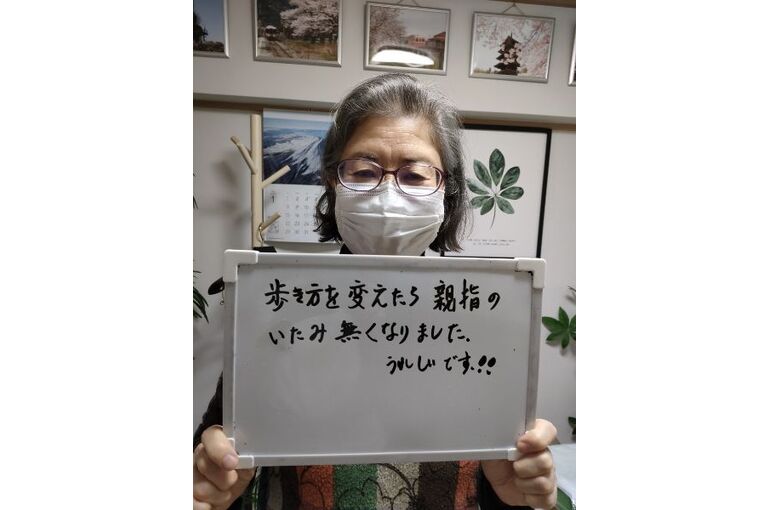 歩き方を変えたら親指の
いたみ無くなりました.
うれしいです.!!
1